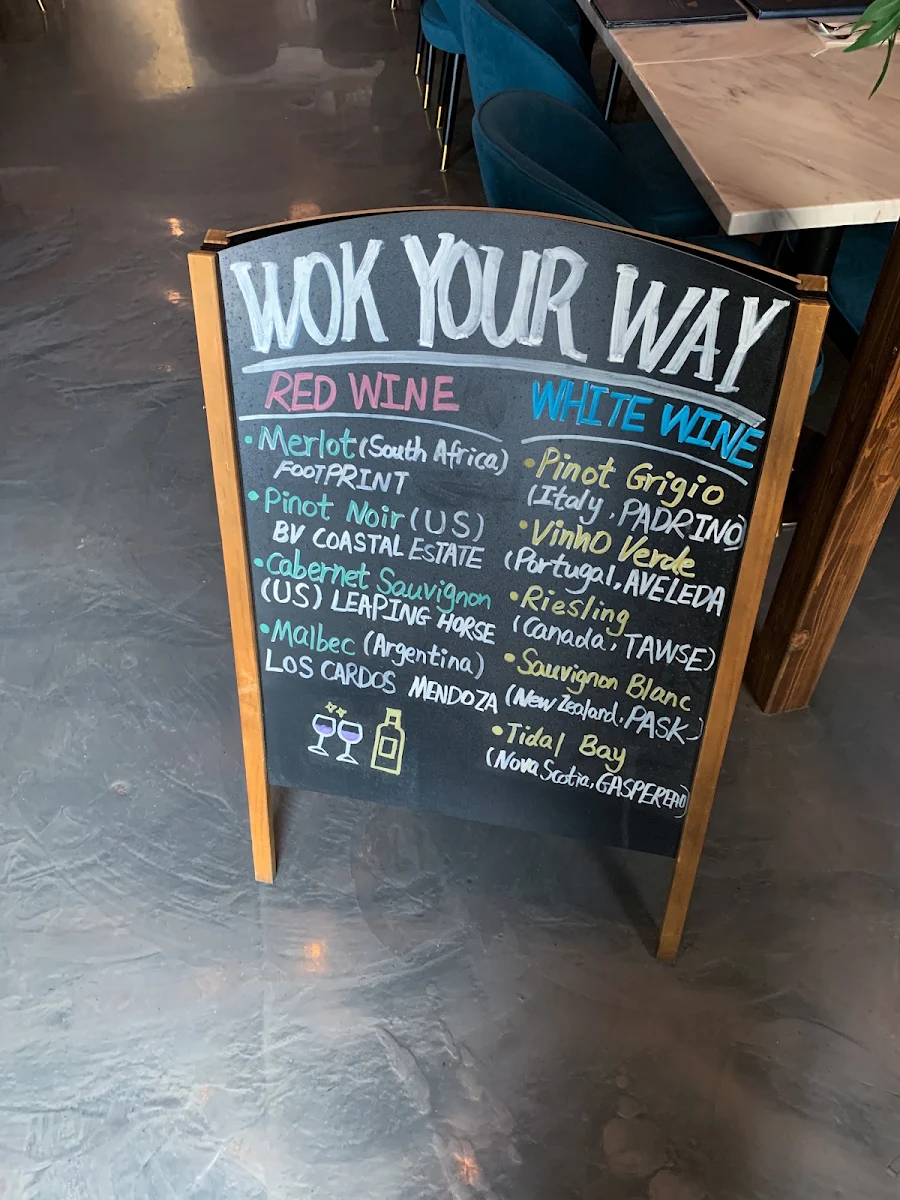 WOK YOUR WAY
RED WINE
• Merlot (South Africa)
FOOTPRINT
• Pinot Noir (US)
BV COASTAL ESTATE
• Cabernet Sauvignon
(US) LEAPING HORSE
• Malbec (Argentina)
LOS CARDOS MENDOZA
WHITE WINE
• Pinot Grigio
(Italy, PADRINO)
• Vinho Verde
(Portugal, AVELEDA
• Riesling
(Canada, TAWSE)
• Sauvignon Blanc
(New Zealand, PASK)
• Tidal Bay
(Nova Scotia, GASPEREAU)